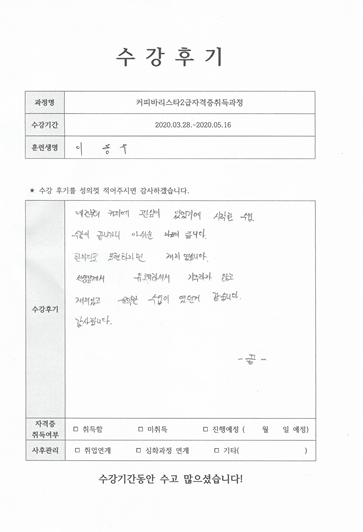 수 강 후 기
과정명 커피바리스타2급자격증취득과정
수강기간 2020.03.28.~2020.05.16
훈련생명 이
★ 수강 후기를 성의껏 적어주시면 감사하겠습니다.
수강후기
예전부터 커피에 관심이 있었기에 시작한 수업.
수업이 끝나가니 아쉬운 듭니다.
표현하자면 재미 있었습니다.
선생님께서 지루하지 않고
재미있고 수업이 였던거 같습니다.
감사합니다.
- 끝 -
자격증 취득여부 □ 취득함 □ 미취득 □ 진행예정 ( 월 일 예정)
사후관리 □ 취업연계 □ 심화과정 연계 □ 기타( )
수강기간동안 수고 많으셨습니다!